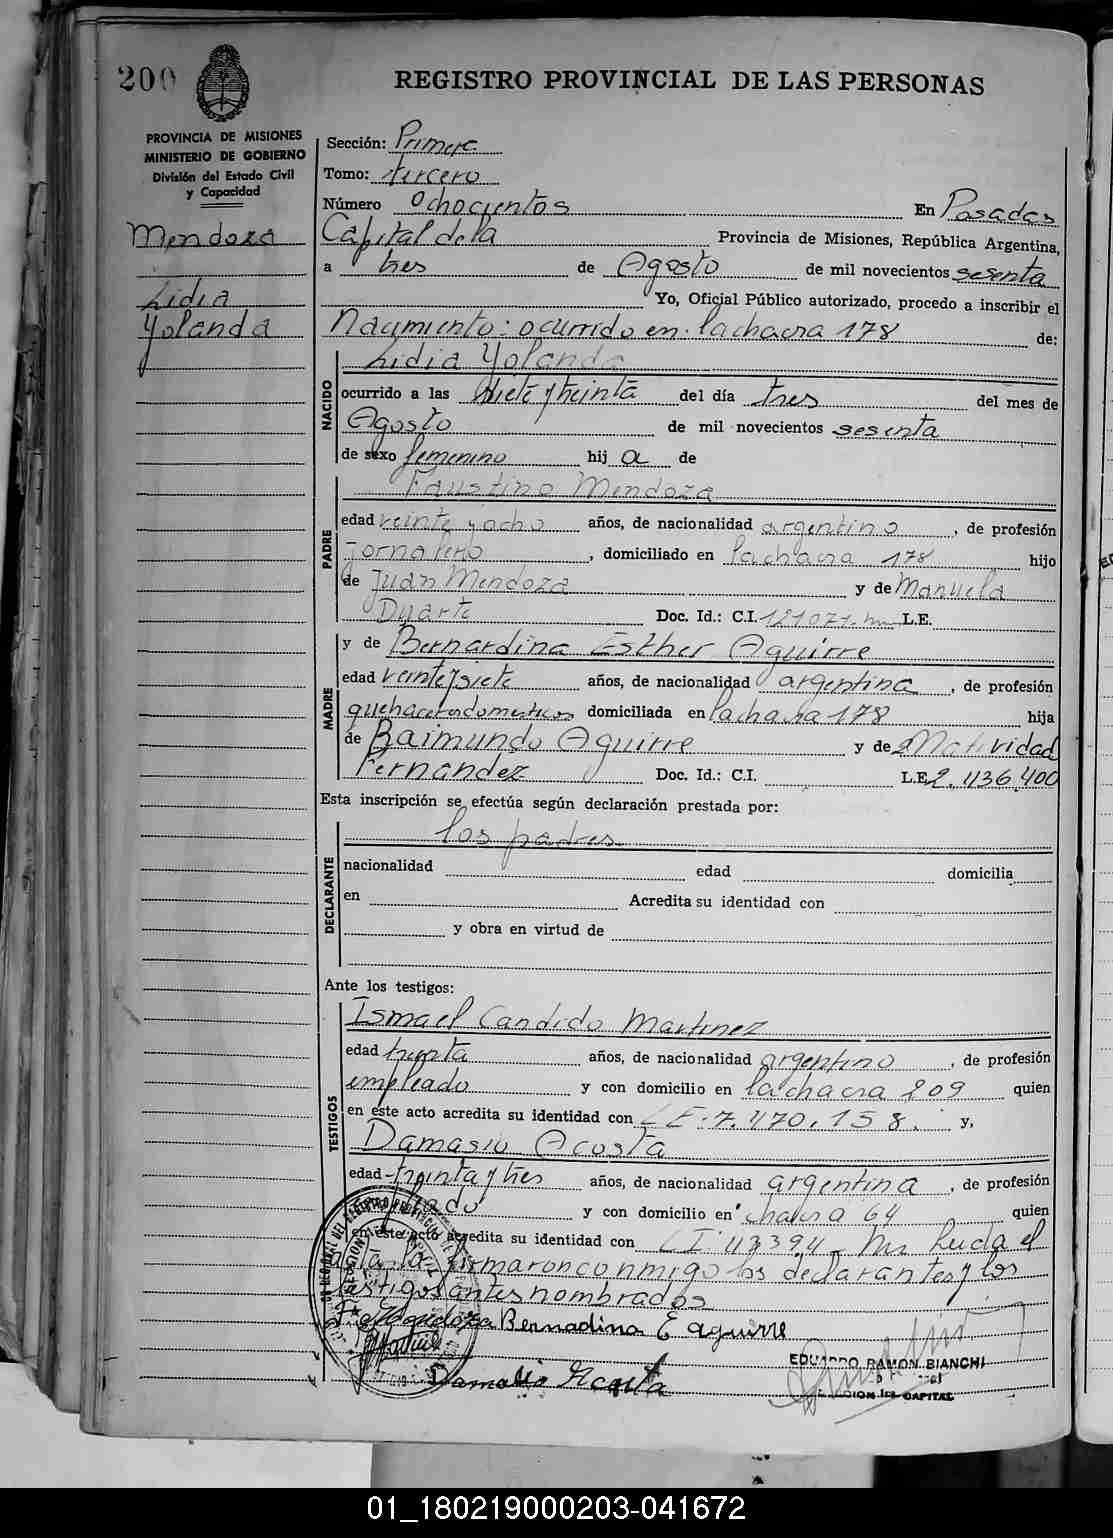 200
REGISTRO PROVINCIAL DE LAS PERSONAS
PROVINCIA DE MISIONES
MINISTERIO DE GOBIERNO
División del Estado Civil
y Capacidad
Mendoza
Lidia
Yolanda
Sección: Primera
Tomo: tercero
Número Ochocientos En Posadas
Capital de la Provincia de Misiones, República Argentina,
a tres de Agosto de mil novecientos sesenta
Yo, Oficial Público autorizado, procedo a inscribir el
Nacimiento: ocurrido en la chacra 178 de:
NACIDO
Lidia Yolanda
ocurrido a las siete y treinta del día tres del mes de
Agosto de mil novecientos sesenta
de sexo femenino hij a de
PADRE
Faustino Mendoza
edad veinte y ocho años, de nacionalidad argentino, de profesión
Jornalero, domiciliado en la chacra 178 hijo
de Juan Mendoza y de Manuela
Duarte Doc. Id.: C.I. 121071 L.E.
MADRE
y de Bernardina Esther Aguirre
edad veinte y siete años, de nacionalidad argentina, de profesión
quehaceres domesticos domiciliada en la chacra 178 hija
de Raimundo Aguirre y de Natividad
Fernandez Doc. Id.: C.I. L.E. 2.436.400
Esta inscripción se efectúa según declaración prestada por:
DECLARANTE
los padres
nacionalidad edad domicilia
en Acredita su identidad con
y obra en virtud de
Ante los testigos:
TESTIGOS
Ismael Candido Martinez
edad treinta años, de nacionalidad argentino, de profesión
empleado y con domicilio en la chacra 209 quien
en este acto acredita su identidad con L E. 7.470.158. y,
Damasio Acosta
edad treinta y tres años, de nacionalidad argentina, de profesión
y con domicilio en chacra 64 quien
en este acto acredita su identidad con C I. 43394 Leida el
acta la firmaron conmigo los declarantes y los
testigos antes nombrados
F. Mendoza Bernadina E aguirre
Damasio Acosta
EDUARDO RAMON BIANCHI
CAPITAL
01_180219000203-041672